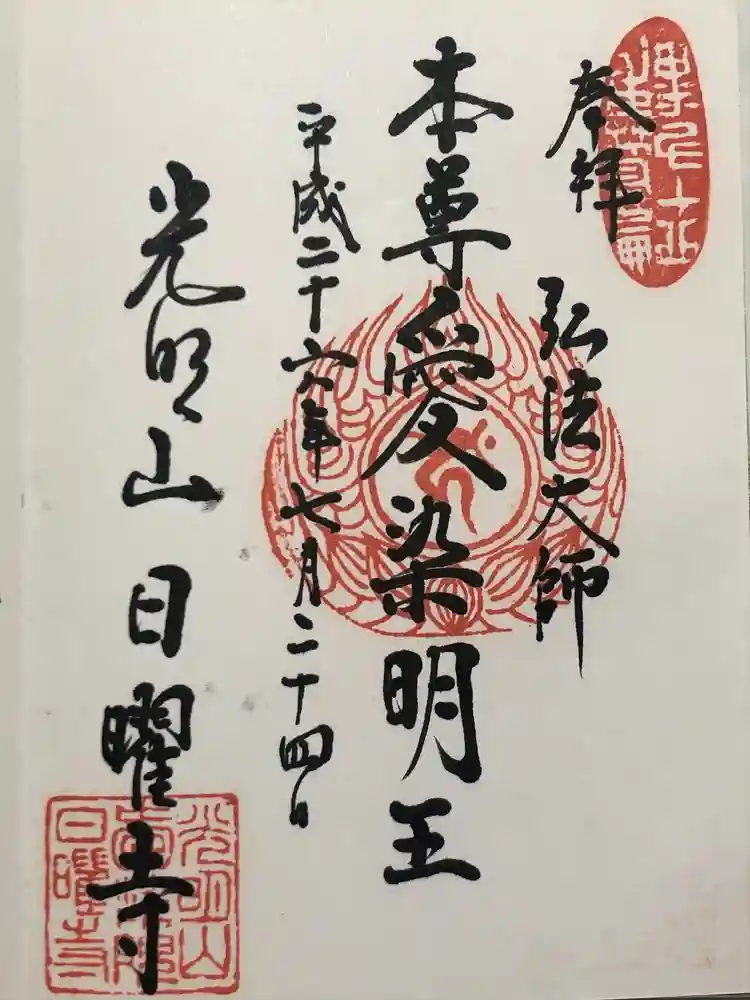 奉拝
弘法大師
本尊愛染明王
平成二十六年七月二十四日
光明山日曜寺
光明山
日曜寺